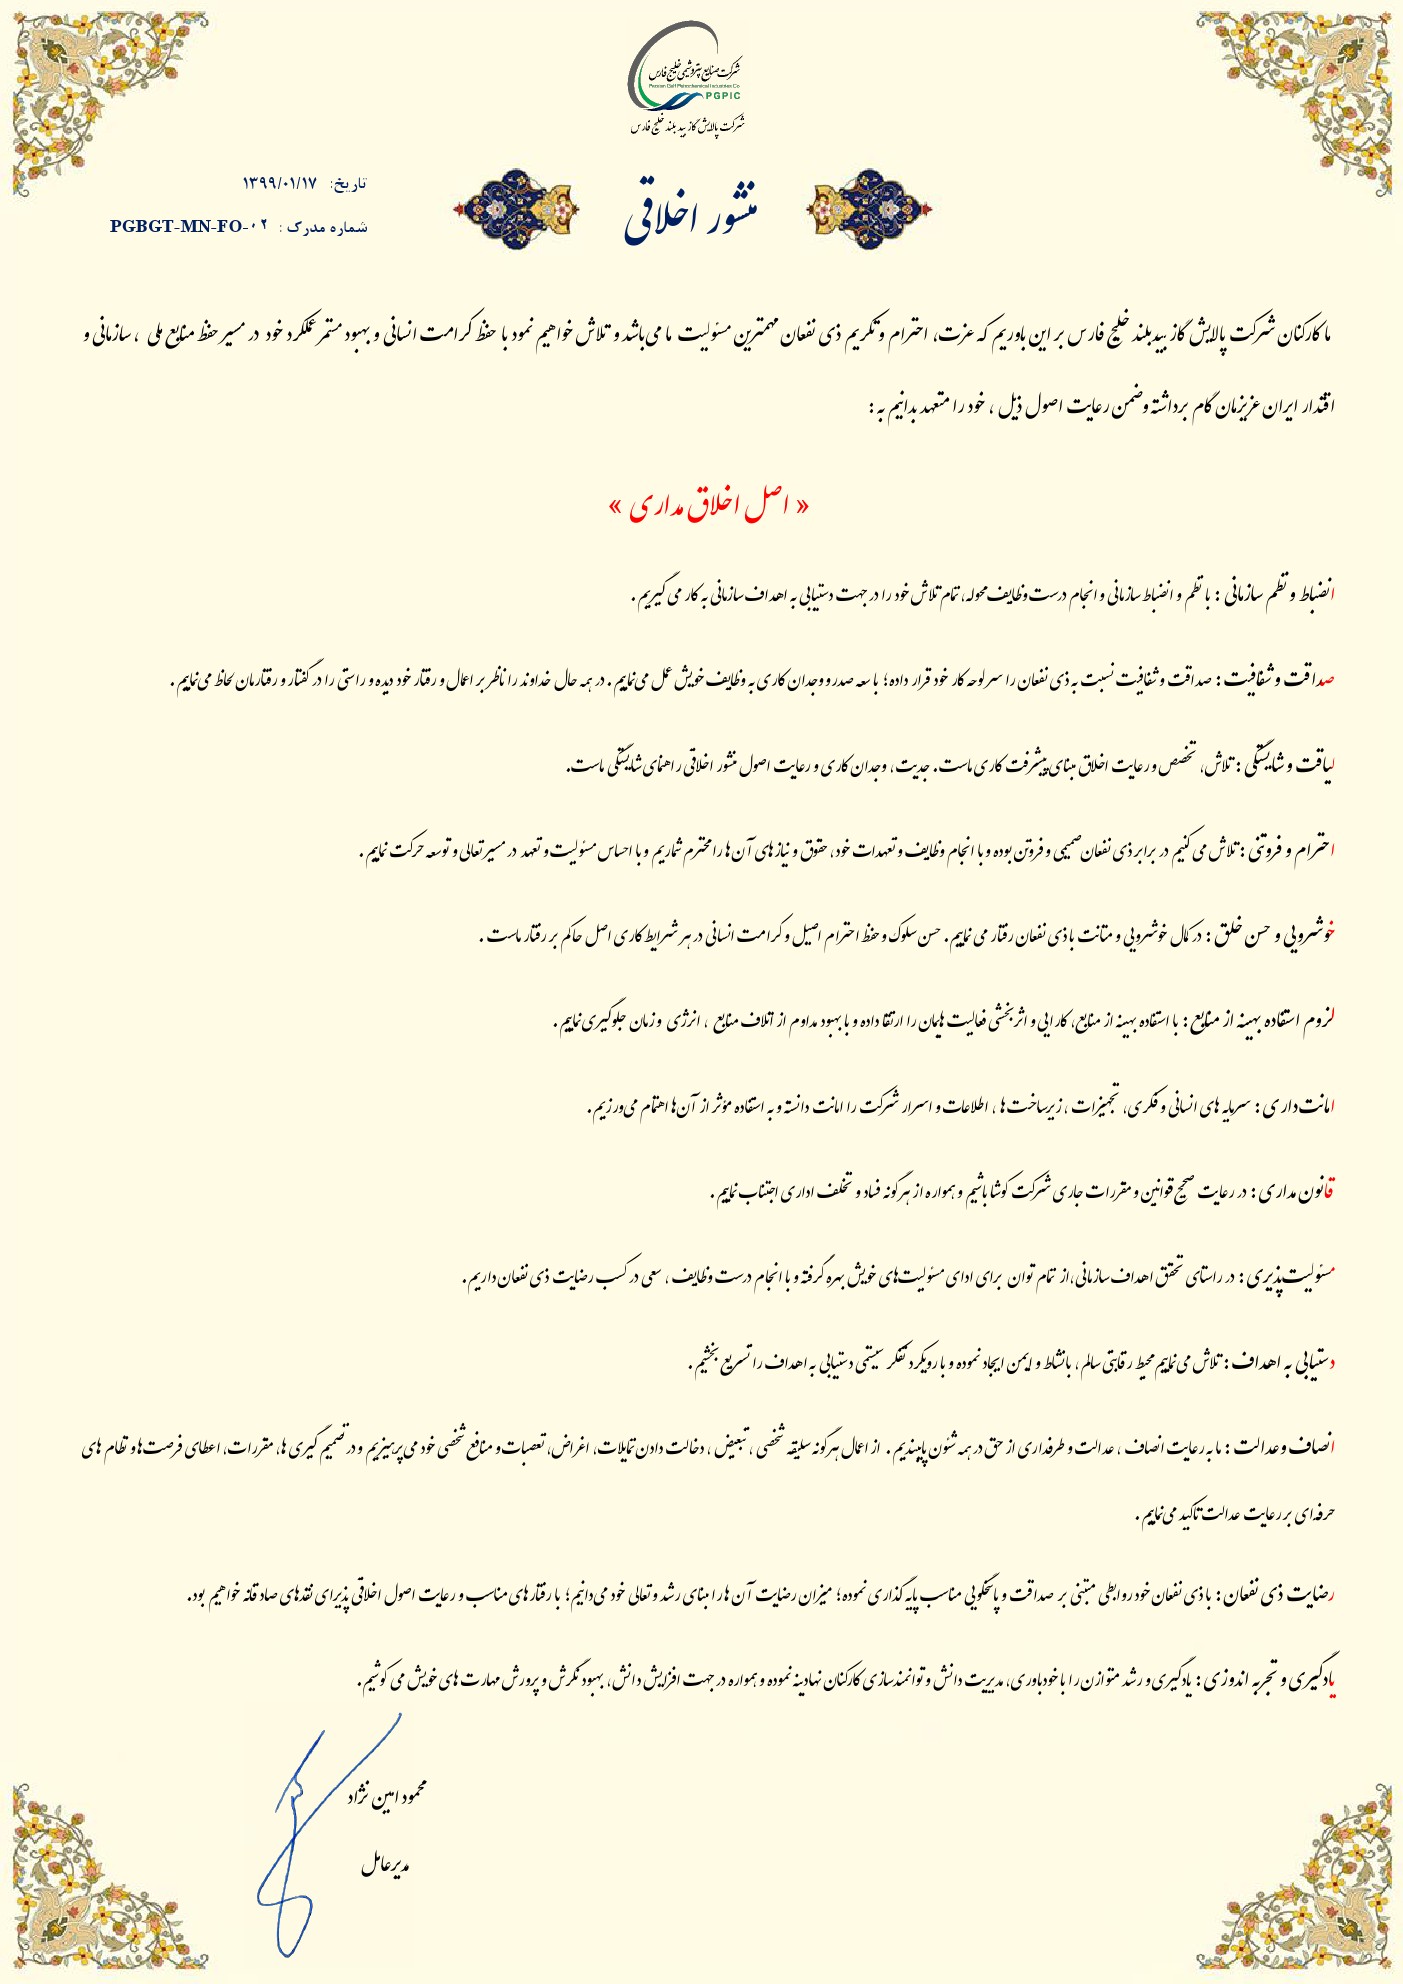 شرکت صنایع پتروشیمی خلیج فارس
Persian Gulf Petrochemical Industries Co
PGPIC
شرکت پالایش گاز بید بلند خلیج فارس
تاریخ: ۱۳۹۹/۰۱/۱۷
منشور اخلاقی
شماره مدرک : PGBGT-MN-FO-۰۲
ما کارکنان شرکت پالایش گاز بیدبلند خلیج فارس بر این باوریم که عزت، احترام و تکریم ذی نفعان مهمترین مسئولیت ما می‌باشد و تلاش خواهیم نمود با حفظ کرامت انسانی و بهبود مستمر عملکرد خود در مسیر حفظ منابع ملی ، سازمانی و
اقتدار ایران عزیزمان گام برداشته وضمن رعایت اصول ذیل ، خود را متعهد بدانیم به:
« اصل اخلاق مداری »
انضباط و نظم سازمانی : با نظم و انضباط سازمانی و انجام درست وظایف محوله، تمام تلاش خود را در جهت دستیابی به اهداف سازمانی به کار می گیریم .
صداقت و شفافیت : صداقت و شفافیت نسبت به ذی نفعان را سرلوحه کار خود قرار داده؛ با سعه صدر و وجدان کاری به وظایف خویش عمل می‌نماییم . در همه حال خداوند را ناظر بر اعمال و رفتار خود دیده و راستی را در گفتار و رفتارمان لحاظ می‌نماییم .
لیاقت و شایستگی : تلاش، تخصص و رعایت اخلاق مبنای پیشرفت کاری ماست. جدیت، وجدان کاری و رعایت اصول منشور اخلاقی راهنمای شایستگی ماست.
احترام و فروتنی : تلاش می کنیم در برابر ذی نفعان صمیمی و فروتن بوده و با انجام وظایف و تعهدات خود، حقوق و نیازهای آن ها را محترم شماریم و با احساس مسئولیت و تعهد در مسیر تعالی و توسعه حرکت نماییم .
خوشرویی و حسن خلق : در کمال خوشرویی و متانت با ذی نفعان رفتار می نماییم . حسن سلوک و حفظ احترام اصیل و کرامت انسانی در هر شرایط کاری اصل حاکم بر رفتار ماست .
لزوم استفاده بهینه از منابع : با استفاده بهینه از منابع، کارایی و اثربخشی فعالیت هایمان را ارتقا داده و با بهبود مداوم از اتلاف منابع ، انرژی و زمان جلوگیری نماییم .
امانت‌داری : سرمایه های انسانی و فکری، تجهیزات ، زیرساخت ها ، اطلاعات و اسرار شرکت را امانت دانسته و به استفاده مؤثر از آن‌ها اهتمام می‌ورزیم.
قانون مداری : در رعایت صحیح قوانین و مقررات جاری شرکت کوشا باشیم و همواره از هرگونه فساد و تخلف اداری اجتناب نماییم .
مسئولیت‌پذیری : در راستای تحقق اهداف سازمانی،از تمام توان برای ادای مسئولیت‌های خویش بهره گرفته و با انجام درست وظایف ، سعی در کسب رضایت ذی نفعان داریم.
دستیابی به اهداف : تلاش می‌نماییم محیط رقابتی سالم ، بانشاط و ایمن ایجاد نموده و با رویکرد تفکر سیستمی دستیابی به اهداف را تسریع بخشیم .
انصاف و عدالت : ما به رعایت انصاف ، عدالت و طرفداری از حق در همه شئون پایبندیم . از اعمال هرگونه سلیقه شخصی ، تبعیض ، دخالت دادن تمایلات، اغراض، تعصبات و منافع شخصی خود می‌پرهیزیم و در تصمیم گیری ها، مقررات، اعطای فرصت‌ها و نظام های
حرفه‌ای بر رعایت عدالت تاکید می‌نماییم .
رضایت ذی نفعان : با ذی نفعان خود روابطی مبتنی بر صداقت و پاسخگویی مناسب پایه گذاری نموده؛ میزان رضایت آن ها را مبنای رشد و تعالی خود می‌دانیم؛ با رفتارهای مناسب و رعایت اصول اخلاقی پذیرای نقدهای صادقانه خواهیم بود.
یادگیری و تجربه اندوزی : یادگیری و رشد متوازن را با خودباوری، مدیریت دانش و توانمندسازی کارکنان نهادینه نموده و همواره در جهت افزایش دانش، بهبود نگرش و پرورش مهارت های خویش می کوشیم.
محمود امین نژاد
مدیرعامل